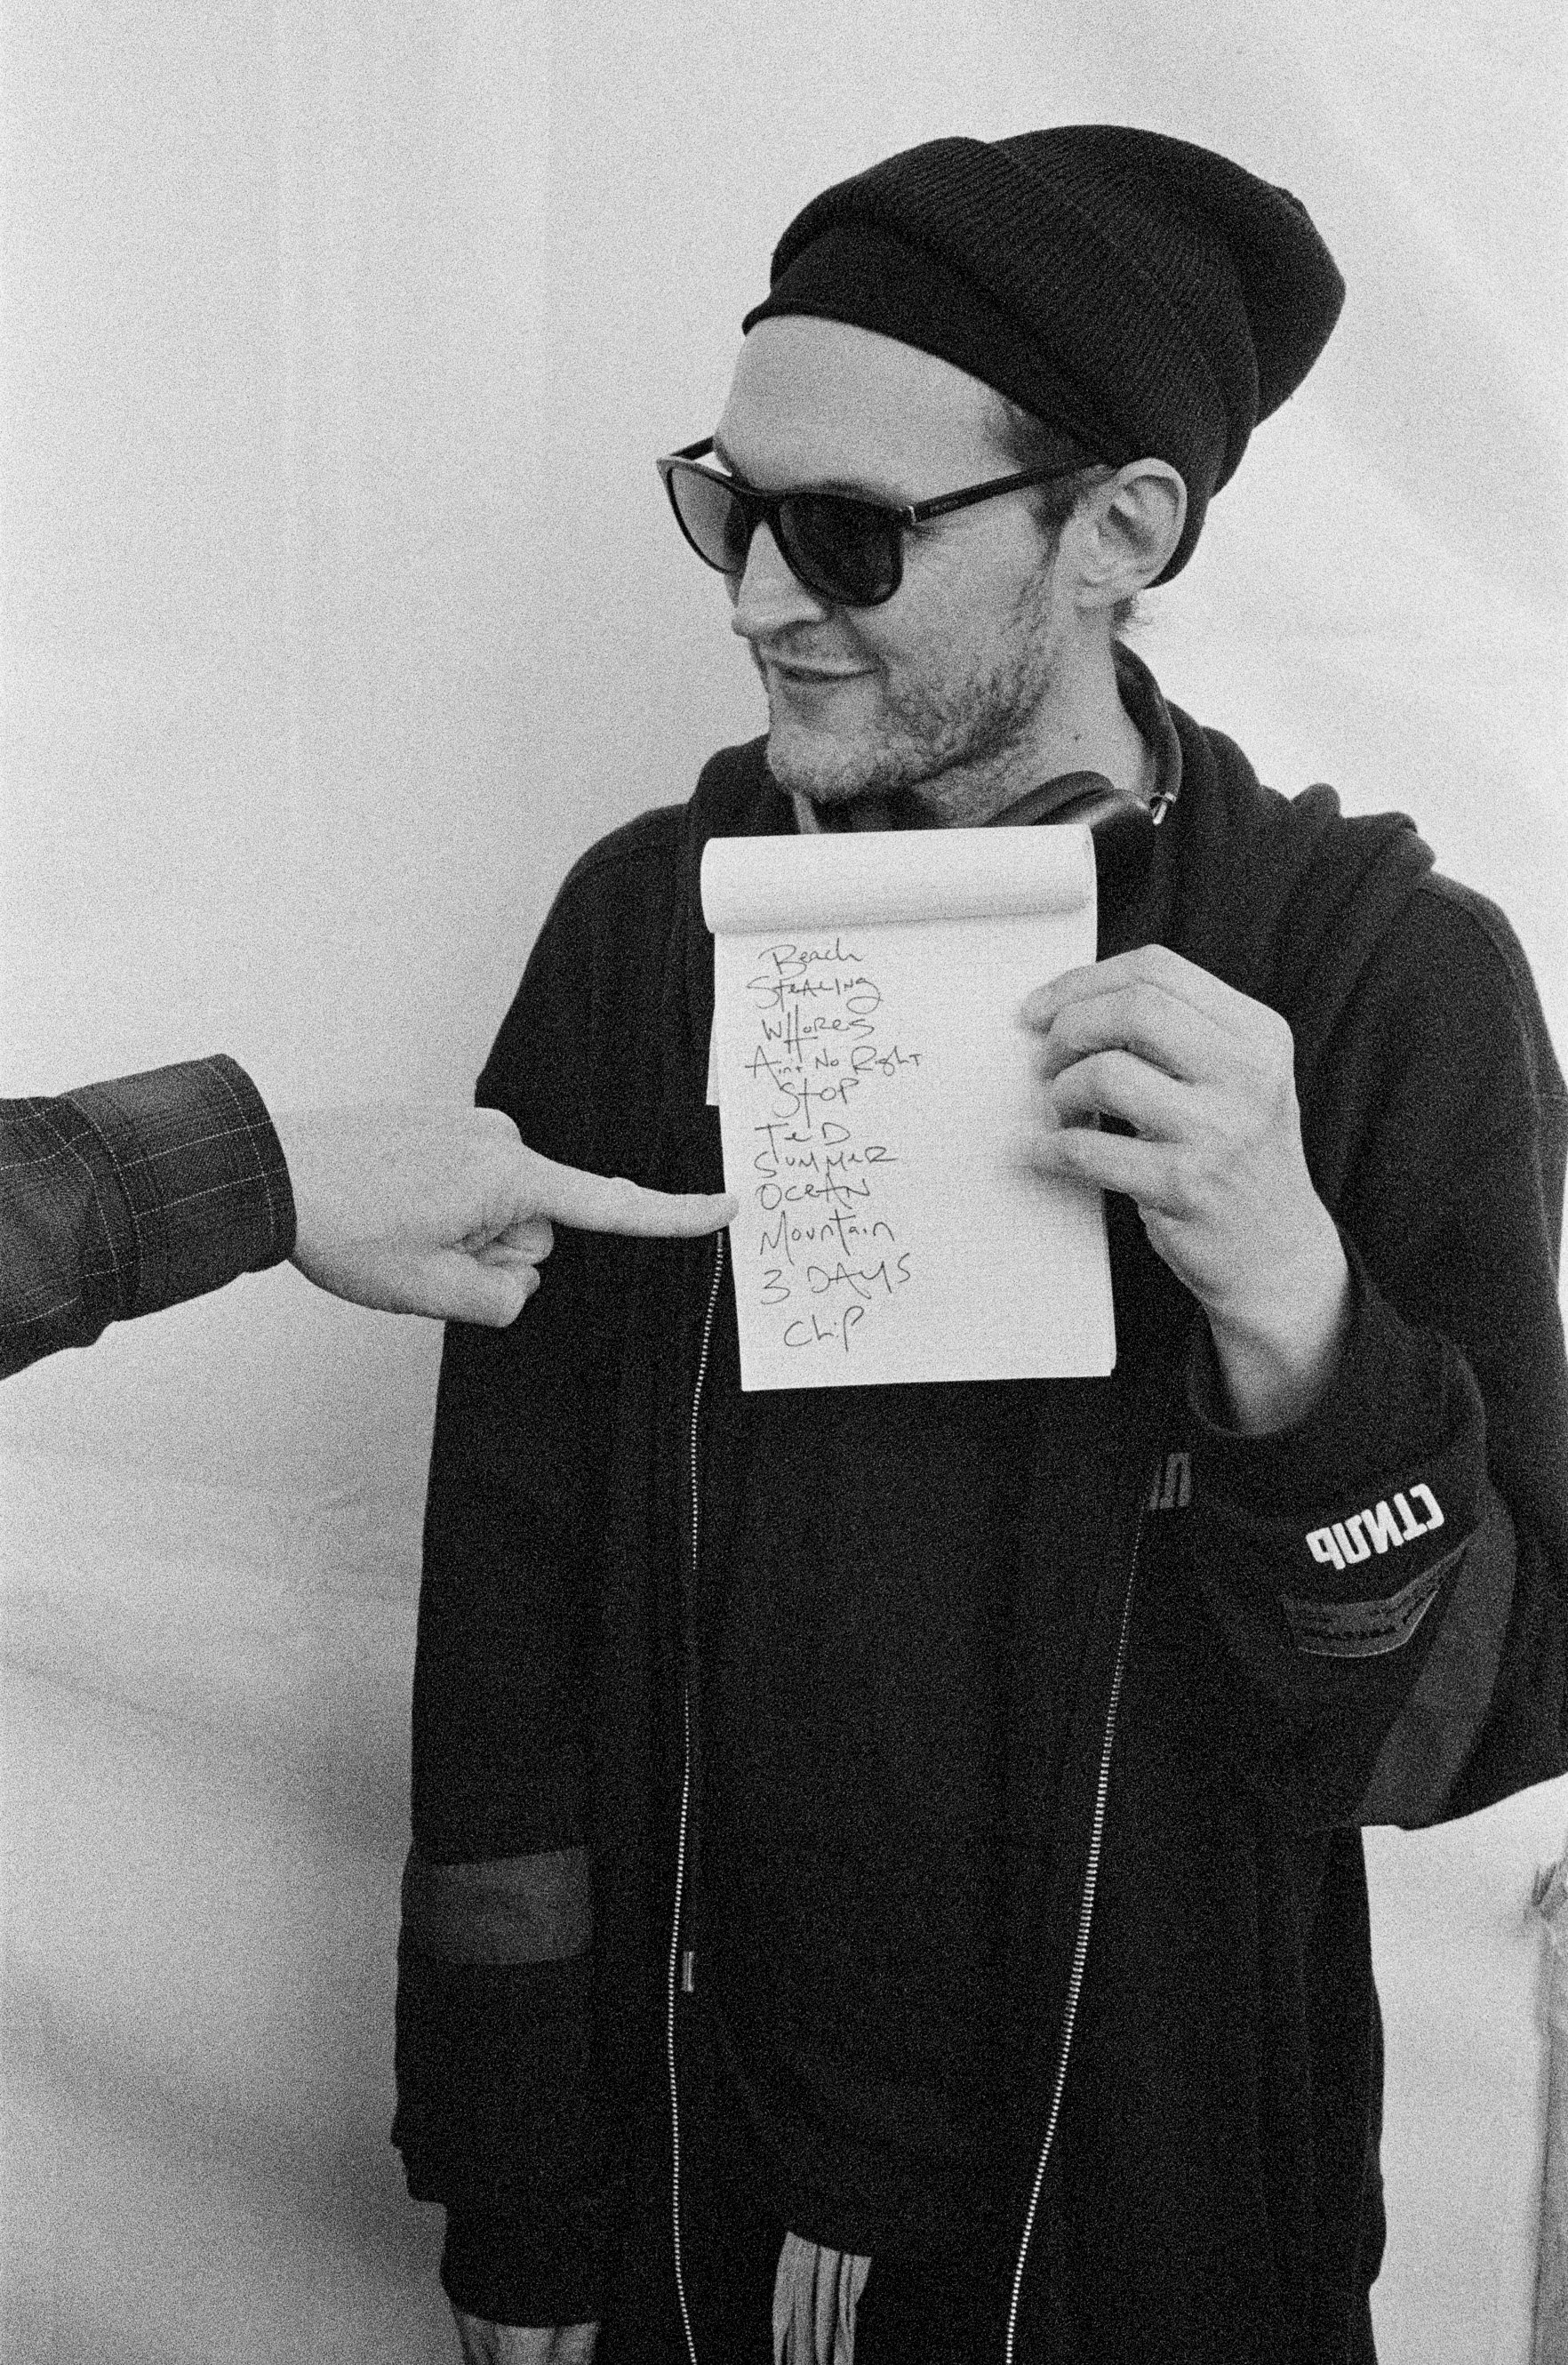 Beach
Stealing
Whores
Ain't No Right
Stop
Ted
Summer
Ocean
Mountain
3 Days
Chip